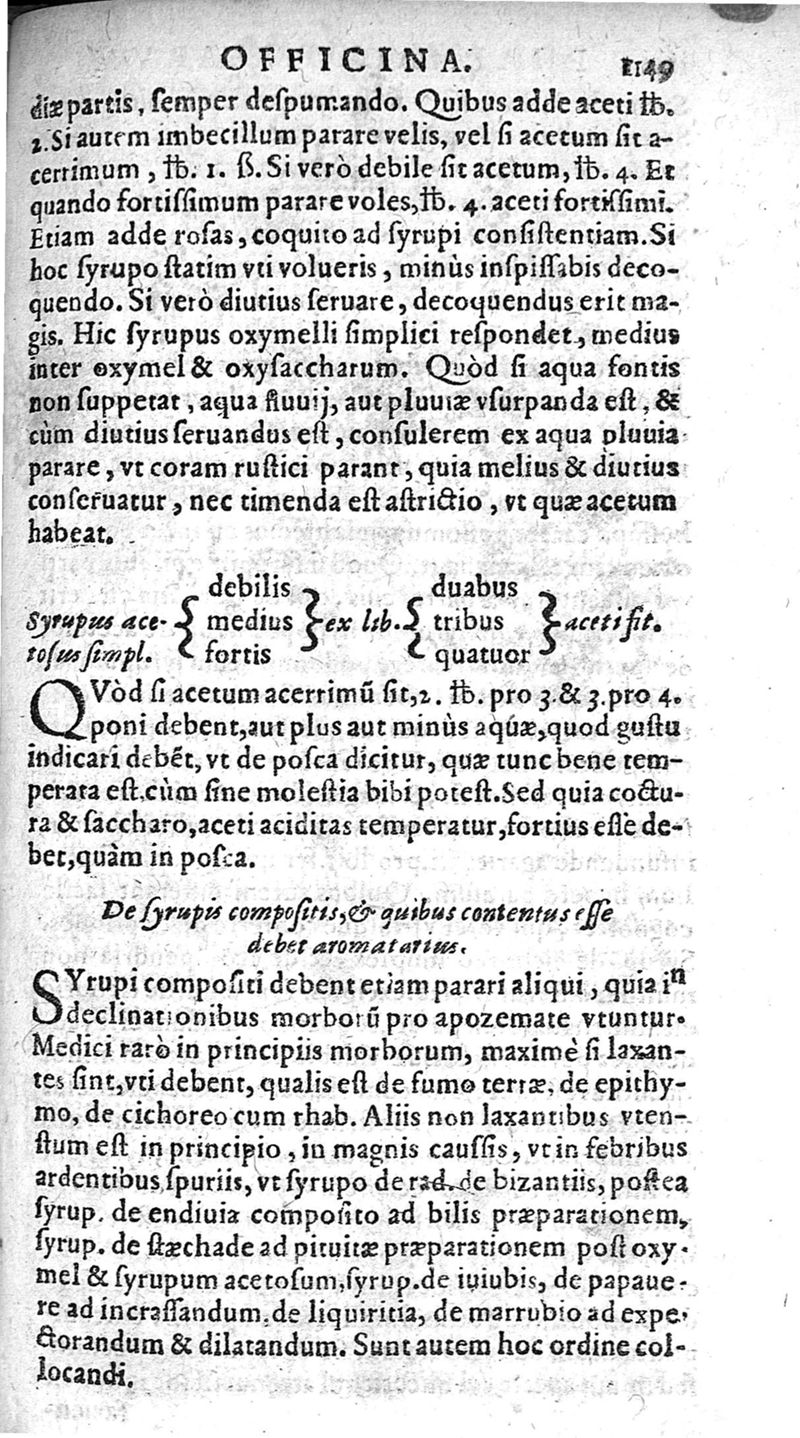 OFFICINA. 1149
diæ partis, semper despumando. Quibus adde aceti ℔.
2. Si autem imbecillum parare velis, vel si acetum sit a-
cerrimum, ℔. 1. ß. Si verò debile sit acetum, ℔. 4. Et
quando fortissimum parare voles, ℔. 4. aceti fortissimi.
Etiam adde rosas, coquito ad syrupi consistentiam. Si
hoc syrupo statim vti volueris, minùs inspissabis deco-
quendo. Si verò diutius seruare, decoquendus erit ma-
gis. Hic syrupus oxymelli simplici respondet, medius
inter oxymel & oxysaccharum. Quòd si aqua fontis
non suppetat, aqua fluuij, aut pluuiæ vsurpanda est, &
cùm diutius seruandus est, consulerem ex aqua pluuia
parare, vt coram rustici parant, quia melius & diutius
conseruatur, nec timenda est astrictio, vt quæ acetum
habeat.
debilis duabus
Syrupus ace- medius ex lib. tribus aceti fit.
tosus simpl. fortis quatuor
QVòd si acetum acerrimū sit, 2. ℔. pro 3. & 3. pro 4.
poni debent, aut plus aut minùs aquæ, quod gustu
indicari debēt, vt de posca dicitur, quæ tunc bene tem-
perata est, cùm sine molestia bibi potest. Sed quia coctu-
ra & saccharo, aceti aciditas temperatur, fortius esse de-
bet, quàm in posca.
De syrupis compositis, & quibus contentus esse
debet aromatarius.
SYrupi compositi debent etiam parari aliqui, quia in
declinationibus morborū pro apozemate vtuntur.
Medici rarò in principiis morborum, maximè si laxan-
tes sint, vti debent, qualis est de fumo terræ, de epithy-
mo, de cichoreo cum rhab. Aliis non laxantibus vten-
stum est in principio, in magnis caussis, vt in febribus
ardentibus spuriis, vt syrupo de rad. de bizantiis, postea
syrup. de endiuia composito ad bilis præparationem,
syrup. de stæchade ad pituitæ præparationem post oxy-
mel & syrupum acetosum, syrup. de iuiubis, de papaue-
re ad incrassandum, de liquiritia, de marrubio ad expe-
ctorandum & dilatandum. Sunt autem hoc ordine col-
locandi.